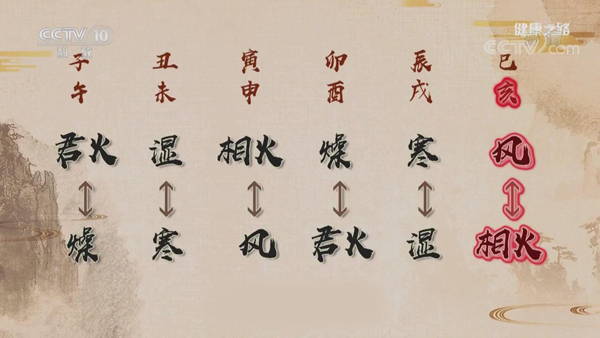 CCTV 10
科教
健康之路
CCTV.com
子 丑 寅 卯 辰 巳
午 未 申 酉 戌 亥
君火 湿 相火 燥 寒 风
燥 寒 风 君火 湿 相火